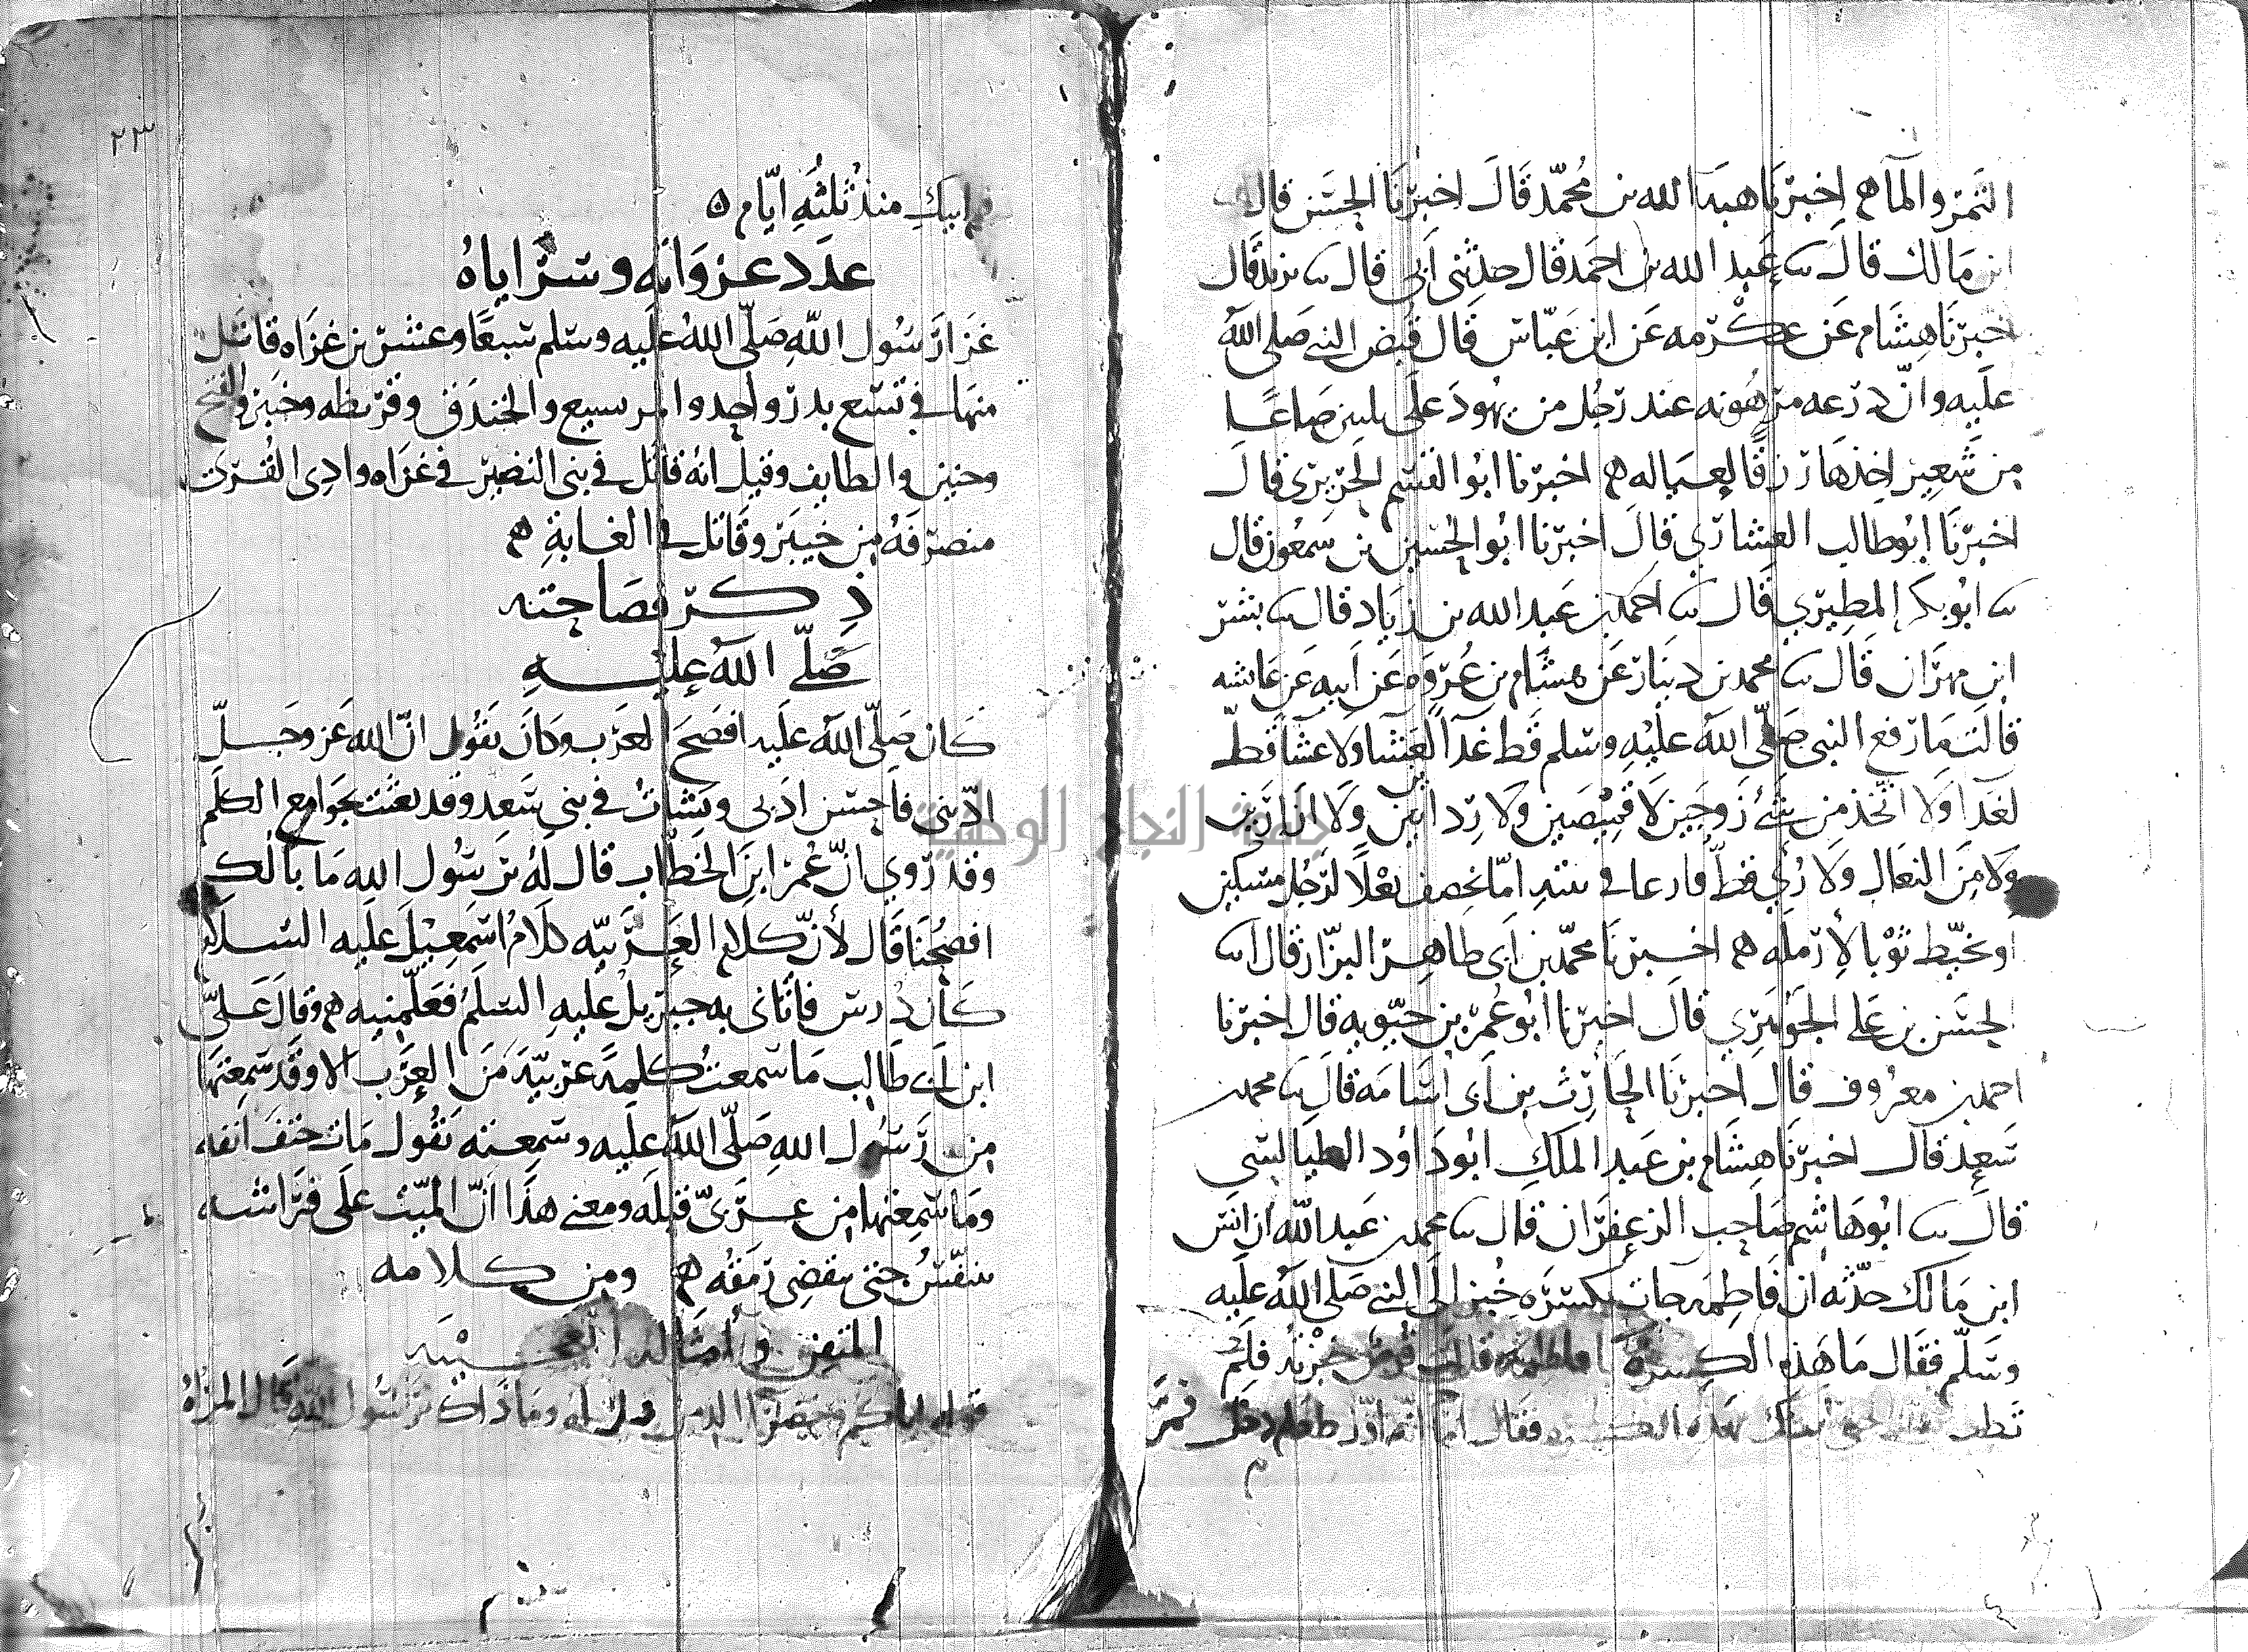 التمر والمآ ه اخبرنا هبة الله بن محمد قال اخبرنا الحسن قال
ابن مالك قال سا عبد الله بن احمد قال حدثنى أبى قال سا يزيد قال
اخبرنا هشام عن عكرمه عن ابن عباس قال قبض النبي صلى الله
عليه وان درعه مرهونه عند رجل من يهود على ثلثين صاعا
من شعير اخذها رزقا لعياله ه اخبرنا ابو القسم الحريرى قال
اخبرنا ابو طالب العشارى قال اخبرنا ابو الحسين بن سمعون قال
سا ابو بكر المطيري قال سا احمد بن عبد الله بن زياد قال سا بشر
ابن مهران قال سا محمد بن دينار عن هشام بن عروه عن ابيه عن عايشه
قالت ما رفع النبى صلى الله عليه وسلم قط غدآ لعشا ولا عشا قط
لغدا ولا اتخذ من شئ زوجين لا قميصين ولا ردايين ولا ازارين
ولا من النعال ولا رئي قط فارغا في بيته اما يخصف نعلا لرجل مسكين
او يخيط ثوبا لأرمله ه اخبرنا محمد بن أبى طاهر البزاز قال اسا
الحسن بن على الجوهري قال اخبرنا ابو عمر بن حيويه قال اخبرنا
احمد بن معروف قال اخبرنا الحارث بن أبى اسامه قال سا محمد بن
سعد قال اخبرنا هشام بن عبد الملك ابو داود الطيالسى
قال سا ابو هاشم صاحب الزعفران قال سا محمد بن عبد الله ان انس
ابن مالك حدثه ان فاطمه جات بكسره خبز الى النبي صلى الله عليه
وسلم فقال ما هذه الكسره يا فاطمه قالت قرص خبزته فلم
تطب نفسى حتى اتيتك بهذه الكسره فقال اما انه اول طعام دخل فم
٢٣
ابيك منذ ثلثه ايام ه
عدد غزواته وسراياه
غزا رسول الله صلى الله عليه وسلم سبعا وعشرين غزاه قاتل
منها في تسع بدر واحد والمريسيع والخندق وقريظه وخيبر والفتح
وحنين والطايف وقيل انه قاتل في بنى النضير في غزاه وادى القرى
منصرفه من خيبر وقاتل في الغابة ه
ذكر فصاحته
صلى الله عليه
كان صلى الله عليه افصح العرب وكان يقول ان الله عز وجل
ادبنى فاحسن ادبى ونشات في بني سعد وقد بعثت بجوامع الكلم
وقد روي ان عمر ابن الخطاب قال له يرسول الله ما بالك
افصحنا قال لأن كلام العربيه كلام اسمعيل عليه السلم
كان درس فاتانى به جبريل عليه السلم فعلمنيه ه وقال على
ابن ابى طالب ما سمعت كلمة عربية من العرب الا وقد سمعتها
من رسول الله صلى الله عليه وسمعته يقول مات حتف انفه
وما سمعتها من عربى قبله ومعنى هذا ان الميت على فراشه
يتنفس حتى ينقضى رمقه ه ومن كلامه
المتقن وأمثاله العجيبه
قوله اياكم وخضرا الدمن قيل له وما ذاك يرسول الله قال المراه